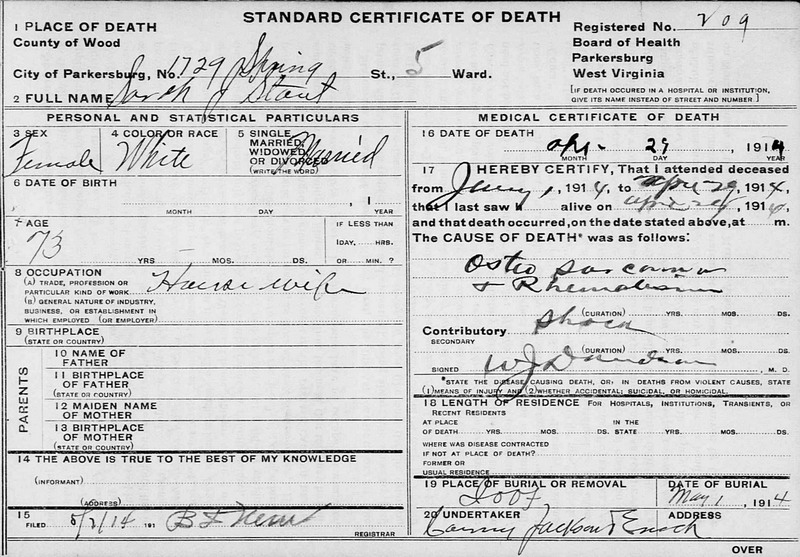 STANDARD CERTIFICATE OF DEATH
1 PLACE OF DEATH
County of Wood
City of Parkersburg, No. 1729 Spring St., 5 Ward.
2 FULL NAME Sarah J Stout
Registered No. 209
Board of Health
Parkersburg
West Virginia
[IF DEATH OCCURED IN A HOSPITAL OR INSTITUTION,
GIVE ITS NAME INSTEAD OF STREET AND NUMBER.]
PERSONAL AND STATISTICAL PARTICULARS
3 SEX
Female
4 COLOR OR RACE
White
5 SINGLE
MARRIED,
WIDOWED,
OR DIVORCED
(WRITE THE WORD)
Married
6 DATE OF BIRTH
, 1
MONTH DAY YEAR
7 AGE
73
YRS MOS. DS.
IF LESS THAN
1 DAY, HRS.
OR MIN. ?
8 OCCUPATION
(A) TRADE, PROFESSION OR
PARTICULAR KIND OF WORK
(B) GENERAL NATURE OF INDUSTRY,
BUSINESS, OR ESTABLISHMENT IN
WHICH EMPLOYED (OR EMPLOYER)
House wife
9 BIRTHPLACE
(STATE OR COUNTRY)
PARENTS
10 NAME OF
FATHER
11 BIRTHPLACE
OF FATHER
(STATE OR COUNTRY)
12 MAIDEN NAME
OF MOTHER
13 BIRTHPLACE
OF MOTHER
(STATE OR COUNTRY)
14 THE ABOVE IS TRUE TO THE BEST OF MY KNOWLEDGE
(INFORMANT)
(ADDRESS)
15
FILED 5/2/14 191 B F
REGISTRAR
MEDICAL CERTIFICATE OF DEATH
16 DATE OF DEATH
Apr. 29, 1914
MONTH DAY YEAR
17 I HEREBY CERTIFY, That I attended deceased
from 1, 1914, to Apr 29, 1914,
that I last saw h alive on Apr 29, 1914
and that death occurred, on the date stated above, at m.
The CAUSE OF DEATH* was as follows:
Osteo sarcoma
+ Rhematism
(DURATION) YRS. MOS. DS.
Contributory Shock
SECONDARY
(DURATION) YRS. MOS. DS.
SIGNED W J Davidson, M. D.
*STATE THE DISEASE CAUSING DEATH, OR, IN DEATHS FROM VIOLENT CAUSES, STATE
(1) MEANS OF INJURY AND (2) WHETHER ACCIDENTAL, SUICIDAL, OR HOMICIDAL.
18 LENGTH OF RESIDENCE FOR HOSPITALS, INSTITUTIONS, TRANSIENTS, OR
RECENT RESIDENTS
AT PLACE IN THE
OF DEATH YRS. MOS. DS. STATE YRS. MOS. DS.
WHERE WAS DISEASE CONTRACTED
IF NOT AT PLACE OF DEATH?
FORMER OR
USUAL RESIDENCE
19 PLACE OF BURIAL OR REMOVAL
IOOF
DATE OF BURIAL
May 1, 1914
20 UNDERTAKER
Jackson & Enoch
ADDRESS
OVER